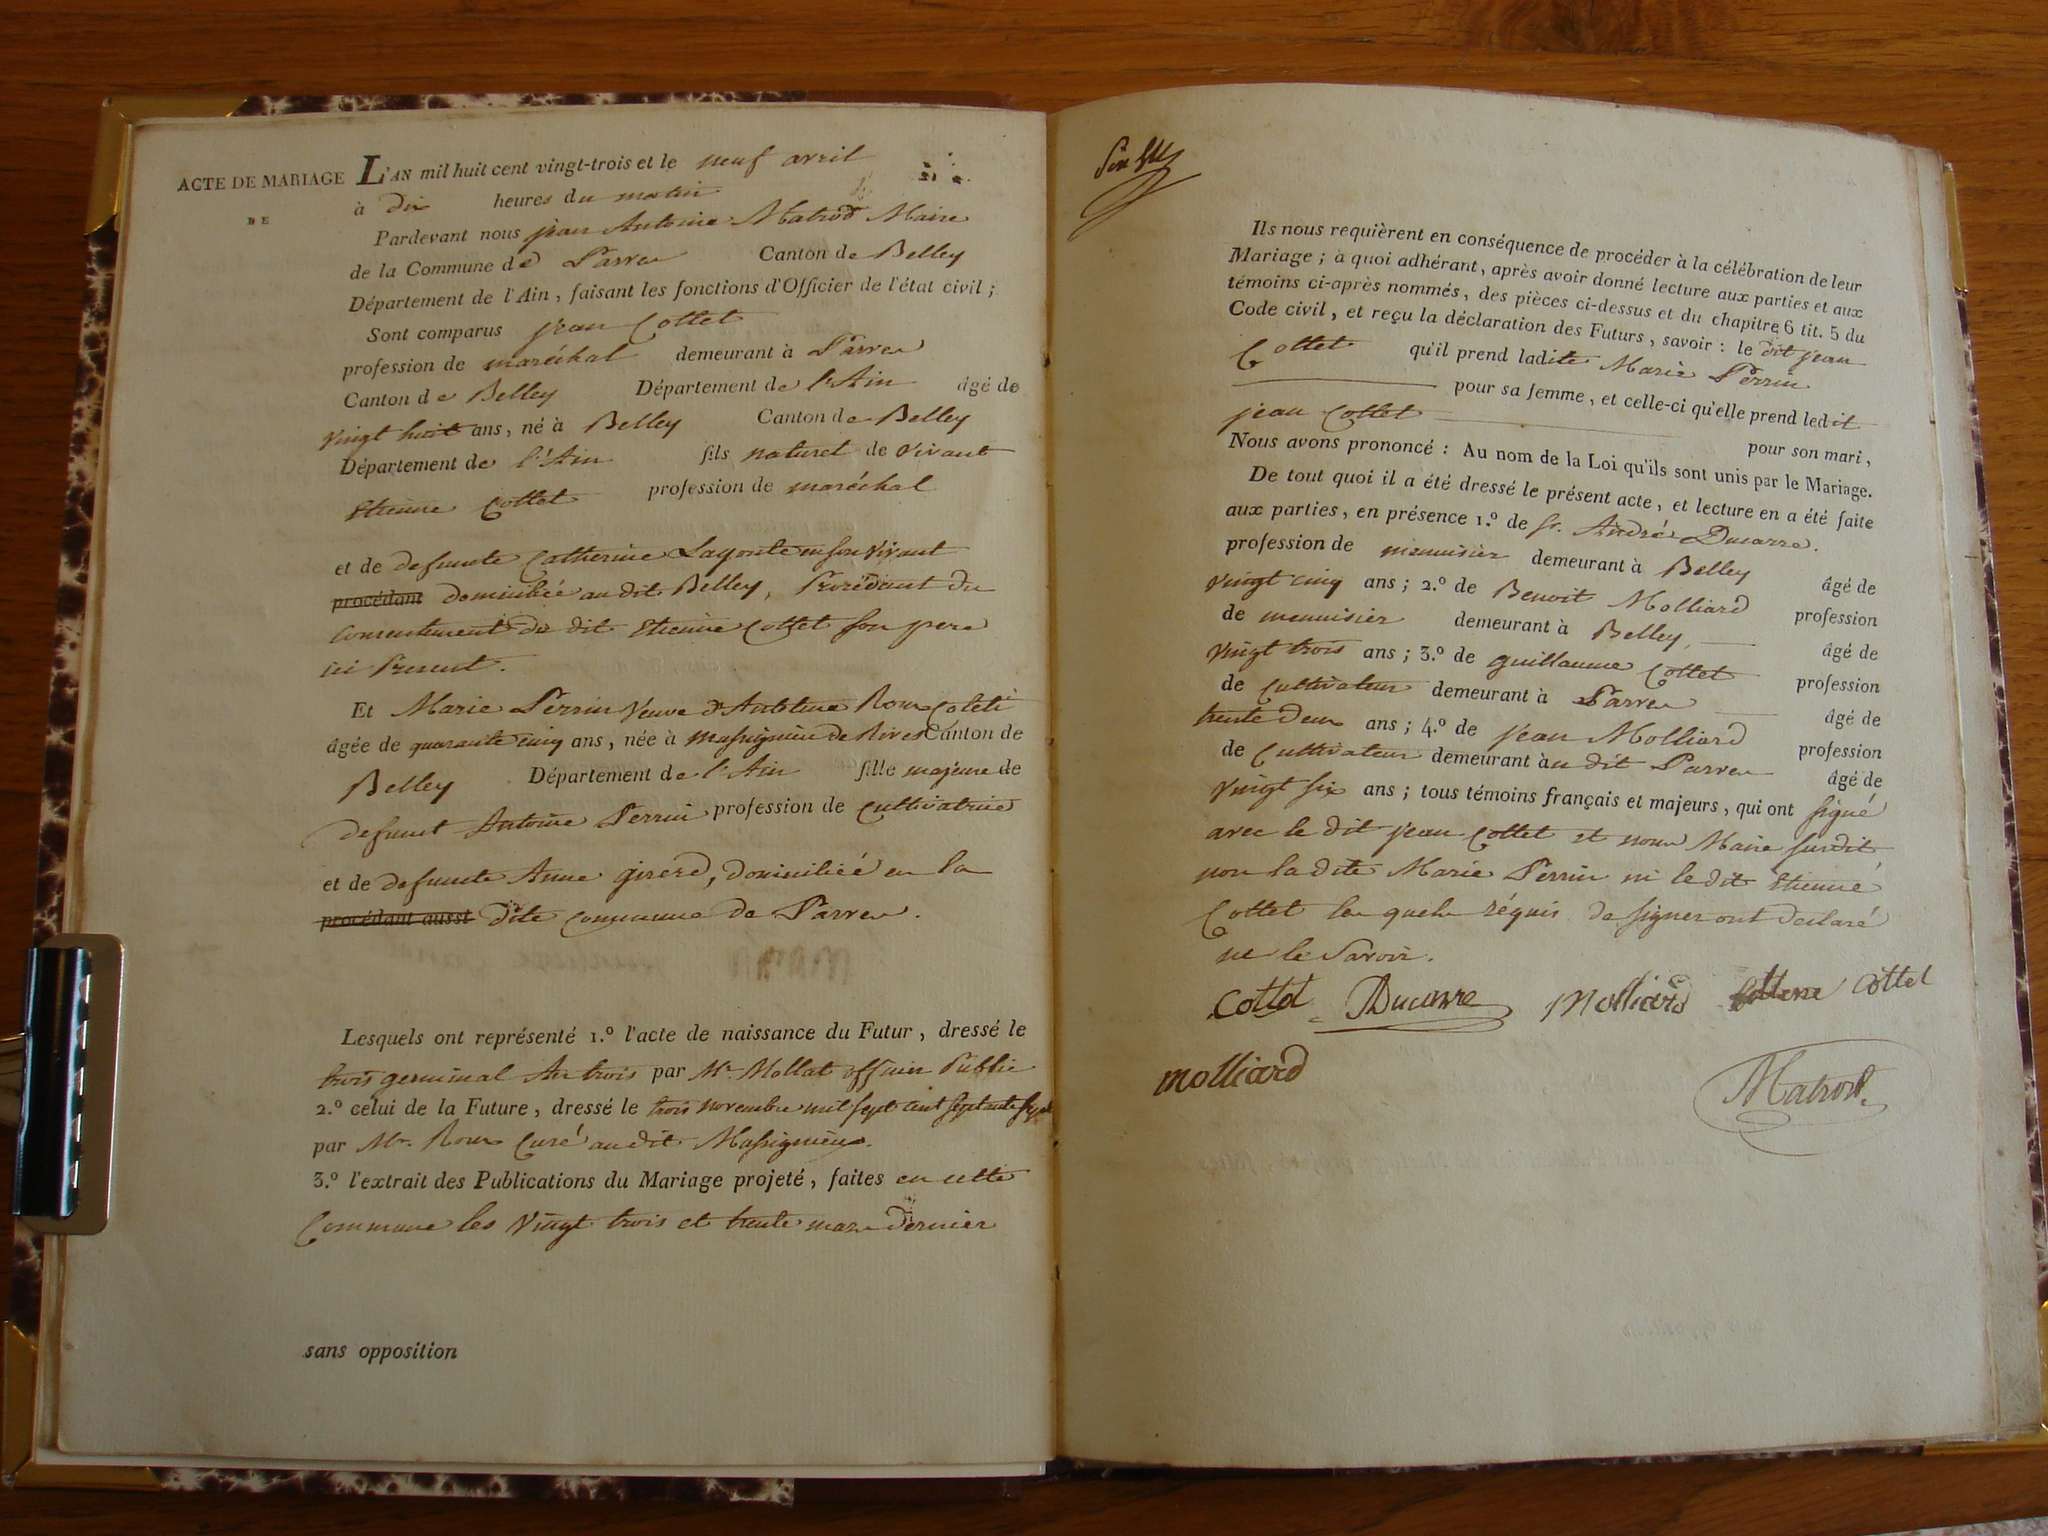 ACTE DE MARIAGE
DE
L'AN mil huit cent vingt-trois et le neuf avril
à dix heures du matin
Pardevant nous jean Antoine Matrod Maire
de la Commune de Parves Canton de Belley
Département de l'Ain, faisant les fonctions d'Officier de l'état civil;
Sont comparus jean Cottet
profession de maréchal demeurant à Parves
Canton de Belley Département de l'Ain âgé de
vingt huit ans, né à Belley Canton de Belley
Département de l'Ain fils naturel de vivant
Etienne Cottet profession de maréchal
et de defunte Catherine en son vivant
procédant domiciliée au dit Belley, Procédant du
consentement du dit Etienne Cottet son pere
ici Present.
Et Marie Perrin Veuve d'Antoine Roux
âgée de quarante cinq ans, née à Massignieu de Rives Canton de
Belley Département de l'Ain fille majeure de
defunt Antoine Perrin profession de Cultivatrice
et de defunte Anne girerd, domiciliée en la
procédant aussi dite commune de Parves.
Lesquels ont représenté 1.º l'acte de naissance du Futur, dressé le
trois germinal An trois par Mr Mollat officier Public
2.º celui de la Future, dressé le trois novembre mil sept cent septante sept
par Mr. Roux Curé au dit Massignieu.
3.º l'extrait des Publications du Mariage projeté, faites en cette
Commune les vingt trois et trente mars dernier
sans opposition
Ils nous requièrent en conséquence de procéder à la célébration de leur
Mariage; à quoi adhérant, après avoir donné lecture aux parties et aux
témoins ci-après nommés, des pièces ci-dessus et du chapitre 6 tit. 5 du
Code civil, et reçu la déclaration des Futurs, savoir: le dit jean
Cottet qu'il prend ladite Marie Perrin
pour sa femme, et celle-ci qu'elle prend ledit
jean Cottet pour son mari,
Nous avons prononcé: Au nom de la Loi qu'ils sont unis par le Mariage.
De tout quoi il a été dressé le présent acte, et lecture en a été faite
aux parties, en présence 1.º de sr. André Ducarre.
profession de menuisier demeurant à Belley âgé de
vingt cinq ans; 2.º de Benoit Molliard profession
de menuisier demeurant à Belley, âgé de
vingt trois ans; 3.º de guillaume Cottet profession
de Cultivateur demeurant à Parves âgé de
trente deux ans; 4.º de jean Molliard profession
de Cultivateur demeurant au dit Parves âgé de
vingt six ans; tous témoins français et majeurs, qui ont signé
avec le dit jean Cottet et nous Maire susdit,
non la dite Marie Perrin ni le dit Etienne
Cottet les quels réquis de signer ont declaré
ne le savoir.
Cottet Ducarre Molliard Cottet
molliard
Matrod.